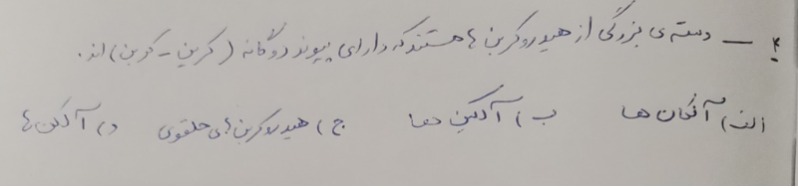 ۴ - دسته ی بزرگی از هیدروکربن ها هستند که دارای پیوند دوگانه (کربن - کربن) اند.
الف) آلکان ها ب) آلکین ها ج) هیدروکربن های حلقوی د) آلکن ها